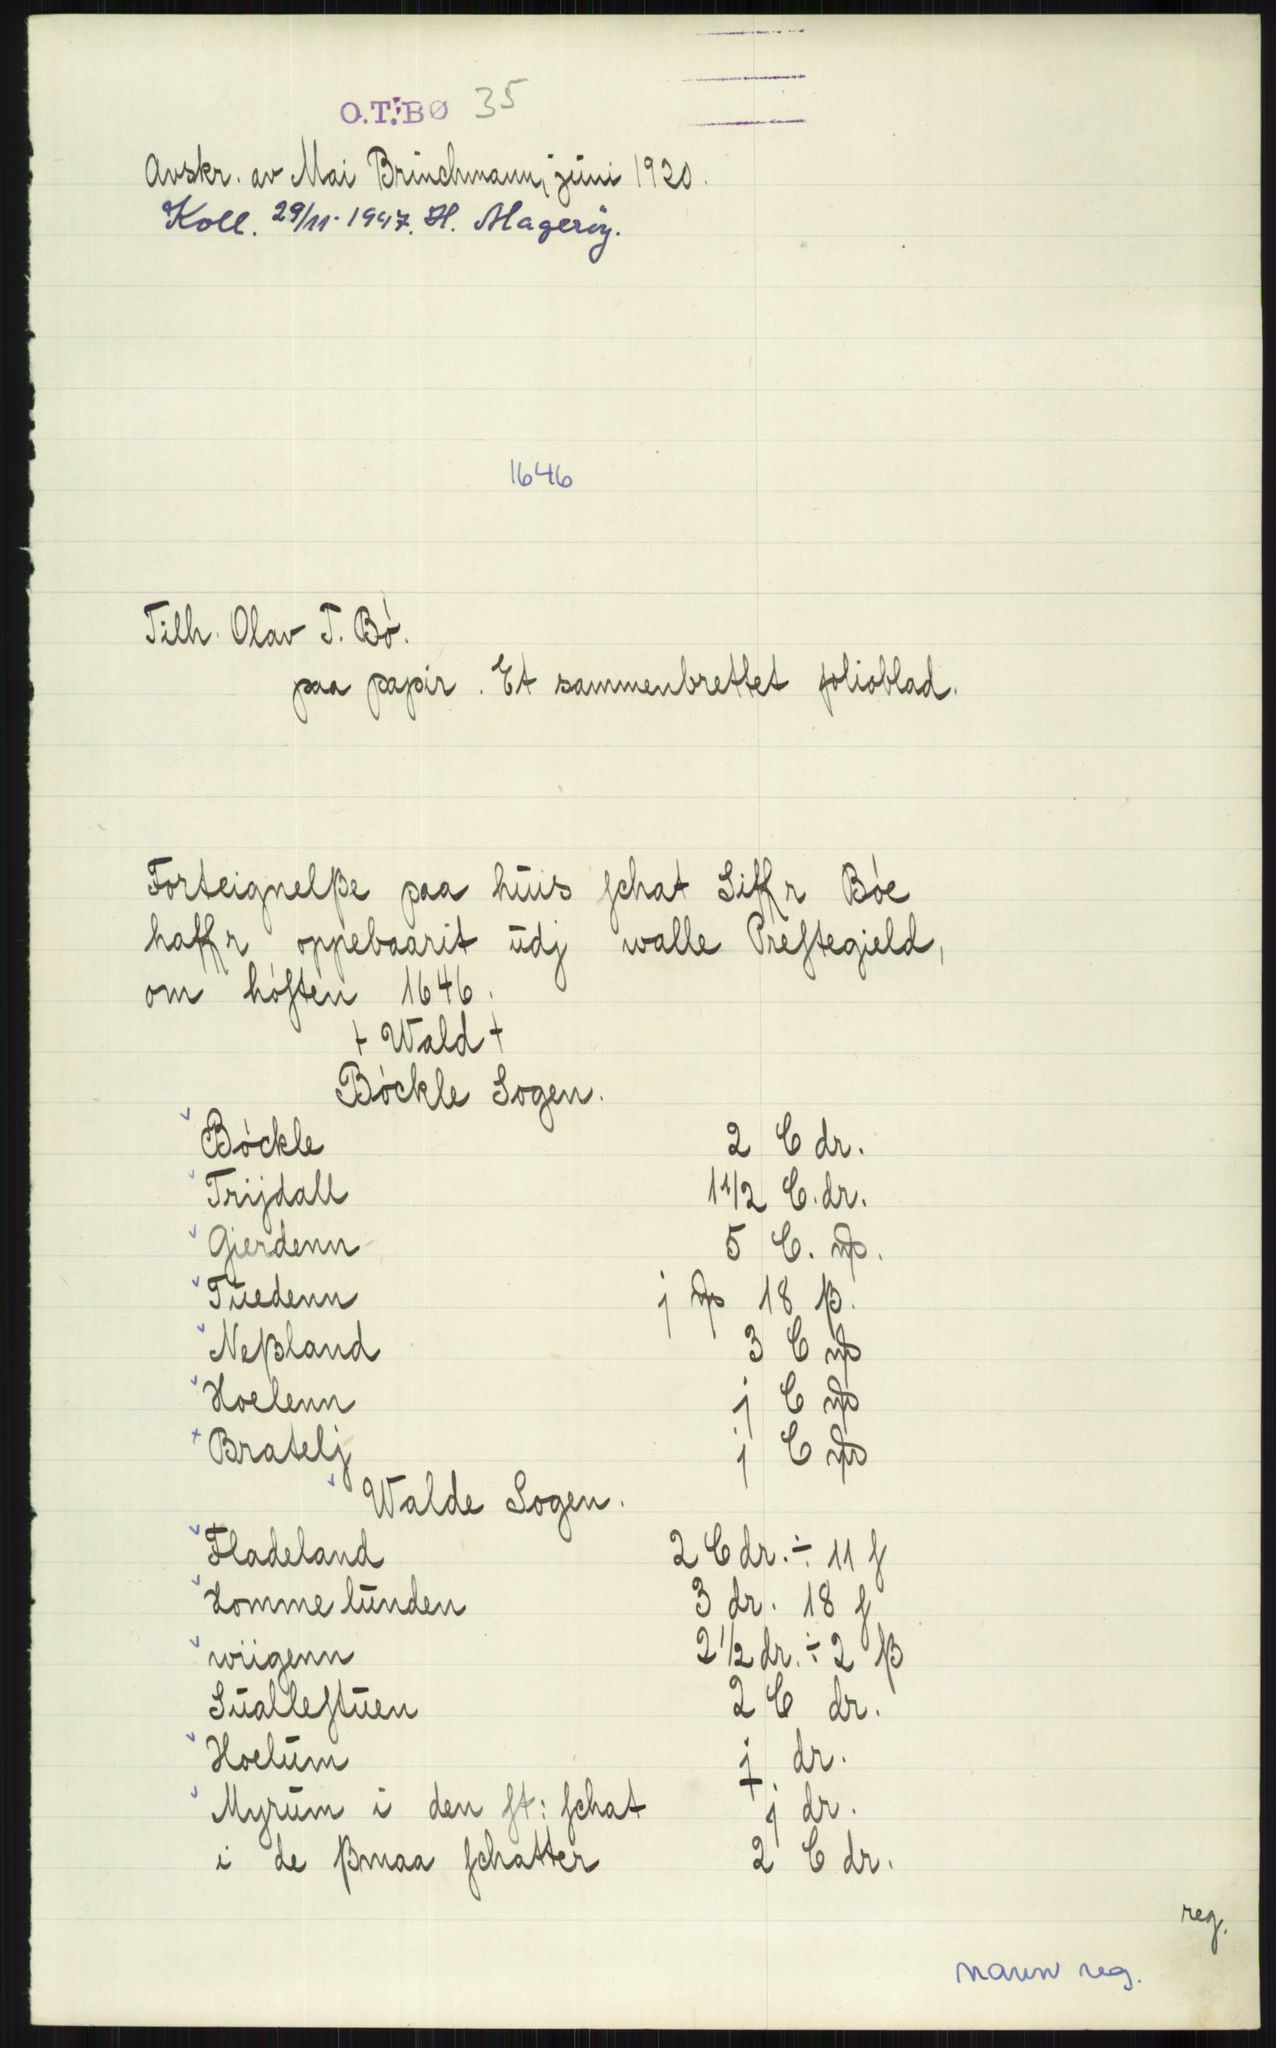 O.T.BØ 35
Avskr. av Mai Brinchmann, juni 1920.
Koll. 29/11-1947. H. Magerøy.
1646
Tilh. Olav T. Bó.
paa papir. Et sammenbrettet folioblad.
Forteignelße paa huis schat Siffr Bóe
haffr oppebaarit udj walle Prestegield,
om hósten 1646.
+ Wald +
Bóckle Sogen.
Bóckle 2 C dr.
Trijdall 1 1/2 C. dr.
Gierdenn 5 C.
Tuedenn j 18 ß.
Neßland 3 C
Hoelenn j C
Bratelj j C
Walde Sogen.
Fladeland 2 C dr. ÷ 11 ſ
Homme lunden 3 dr. 18 ſ
wiigenn 2 1/2 dr. ÷ 2 ß
Suallestuen 2 C dr.
Hoelum j dr.
Myrum i den st: schat j dr.
i de ßmaa schatter 2 C dr.
reg.
navn reg.